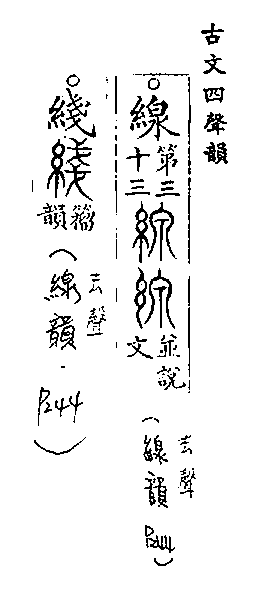 古文四聲韻
○線第三十三 綫 綫 並說文
(去聲 線韻 P244)
○綫 綫 籀韻
(去聲 線韻 · P244)